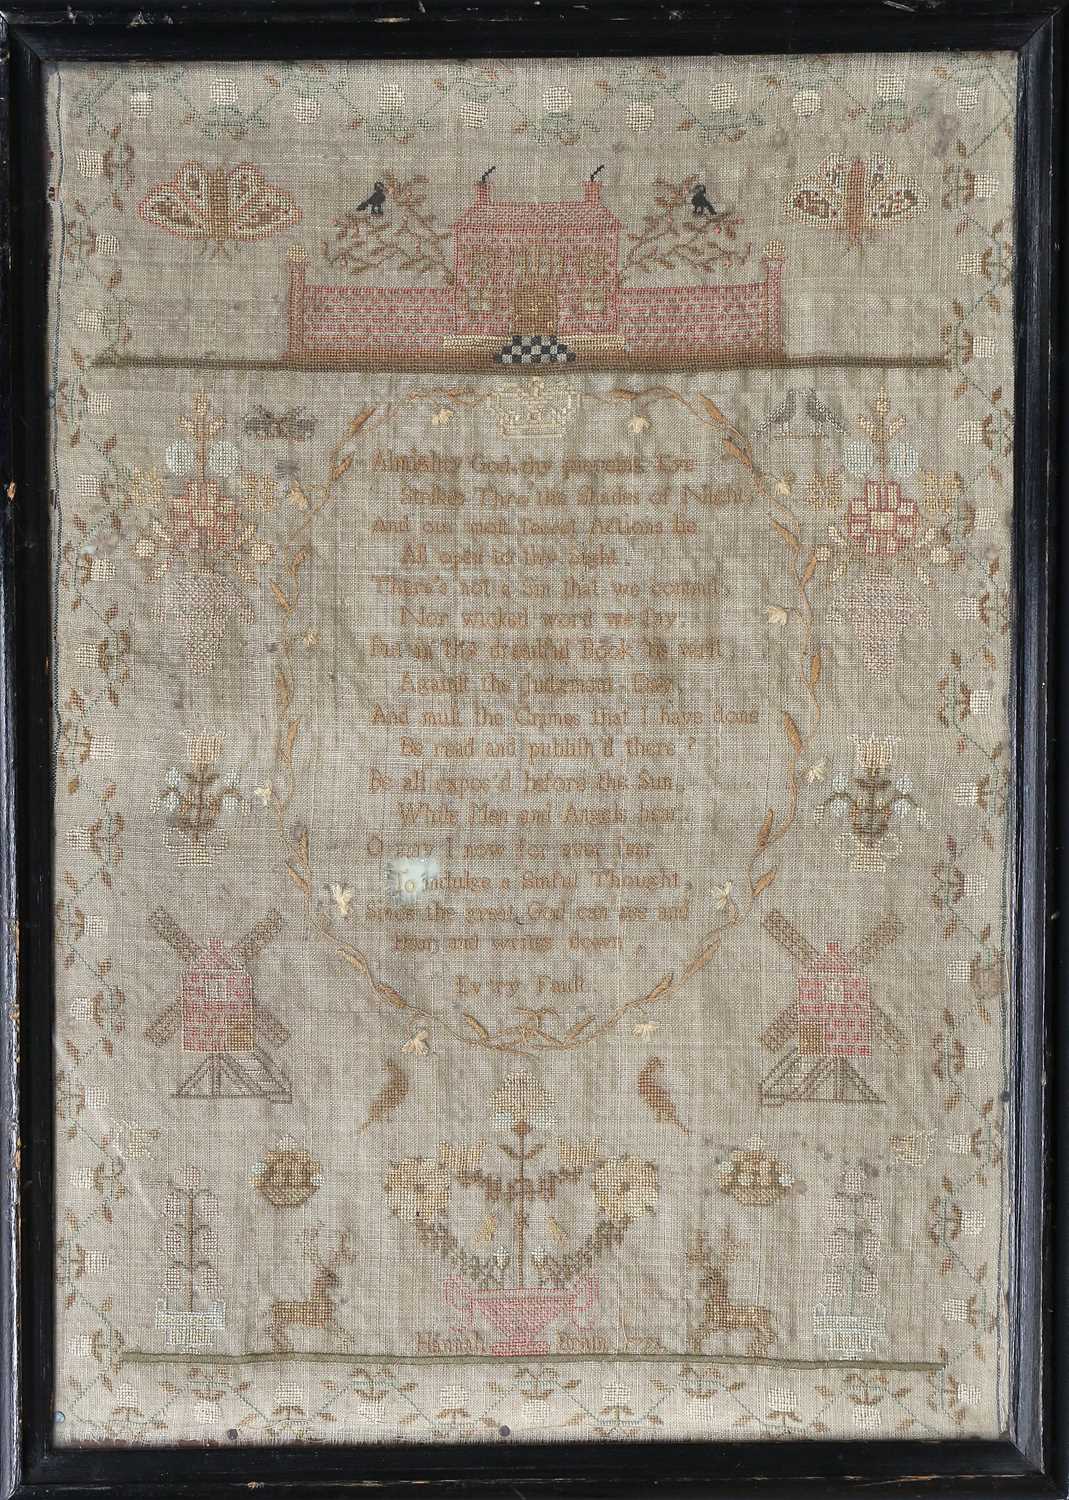 Almighty God thy piercing Eye
Strikes Thro' the Shades of Night,
And our moſt ſecret Actions lie
All open to thy Sight.
There's not a Sin that we commit,
Nor wicked word we ſay,
But in thy dreadful Book 'tis writ
Againſt the Judgment Day.
And muſt the Crimes that I have done
Be read and publiſh'd there?
Be all expos'd before the Sun,
While Men and Angels hear.
O may I now for ever fear
To indulge a Sinful Thought,
Since the great God can see and
Hear, and writes down
Ev'ry Fault.
Hannah